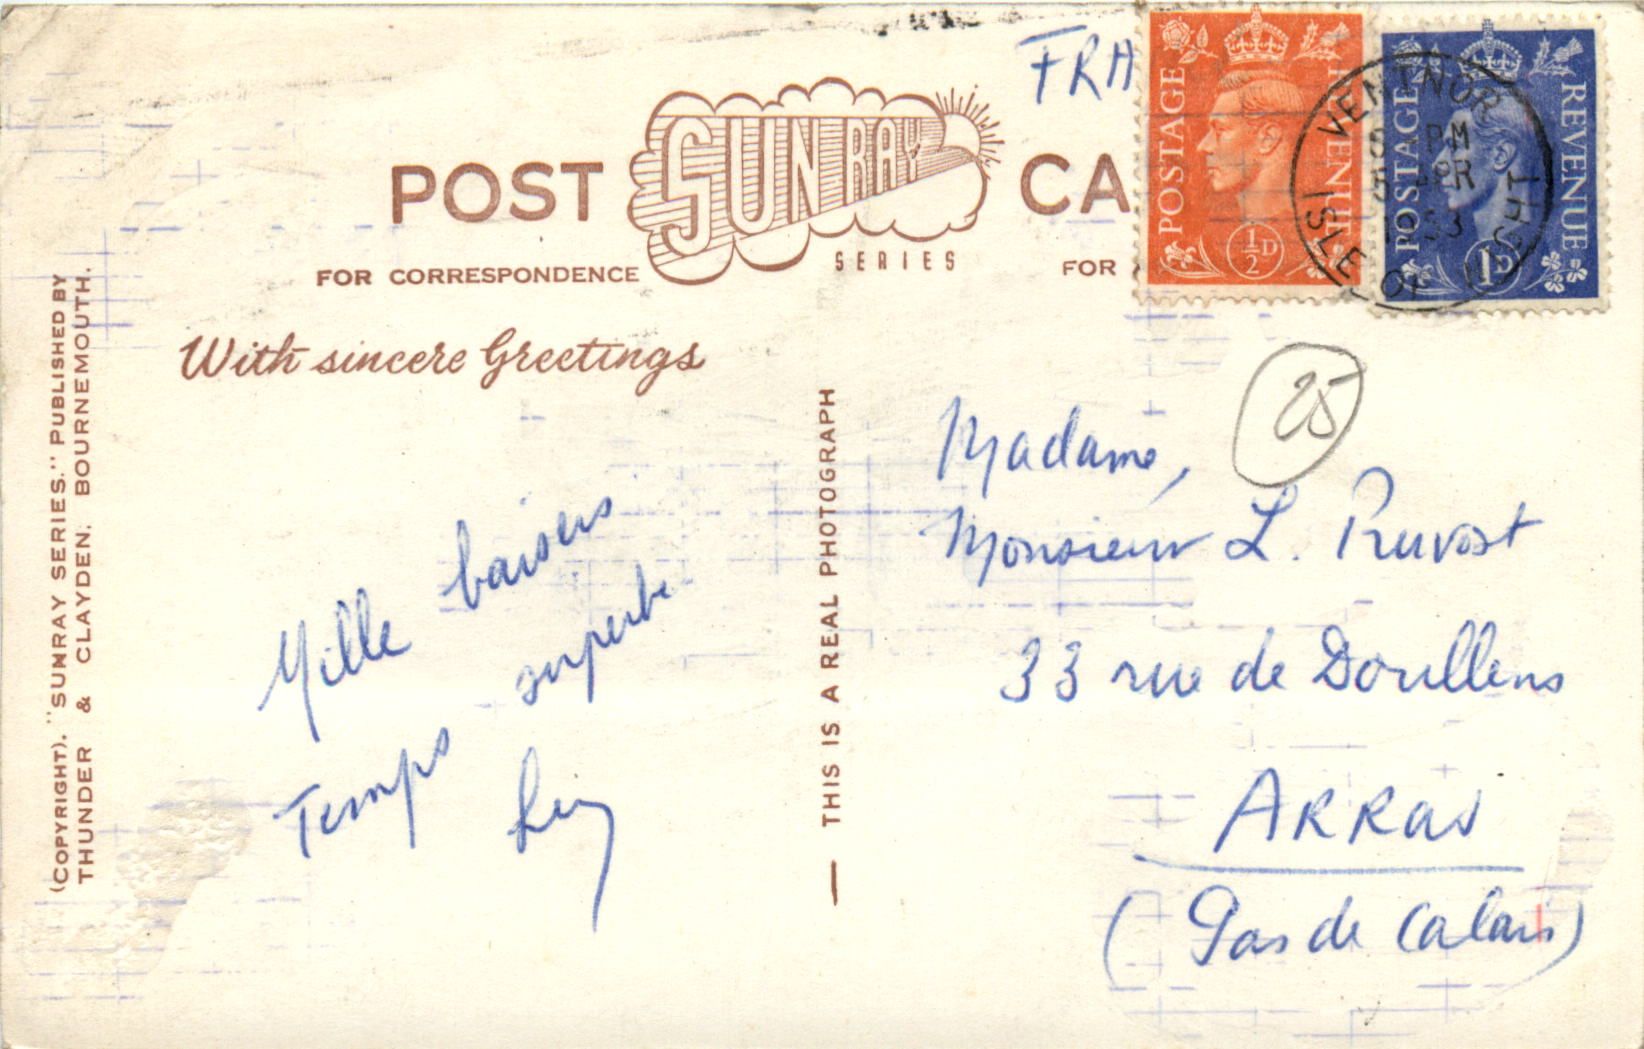 FRA
POST SUNRAY SERIES CA
FOR CORRESPONDENCE
FOR
POSTAGE REVENUE
½D
POSTAGE REVENUE
1D
VENTNOR
ISLE OF WIGHT
PM
APR
1953
With sincere Greetings
(COPYRIGHT). "SUNRAY SERIES." PUBLISHED BY
THUNDER & CLAYDEN. BOURNEMOUTH.
THIS IS A REAL PHOTOGRAPH
25
Mille baisers
Temps superbe
Madame,
Monsieur L. Pruvost
33 rue de Doullens
ARRas
(Pas de Calais)